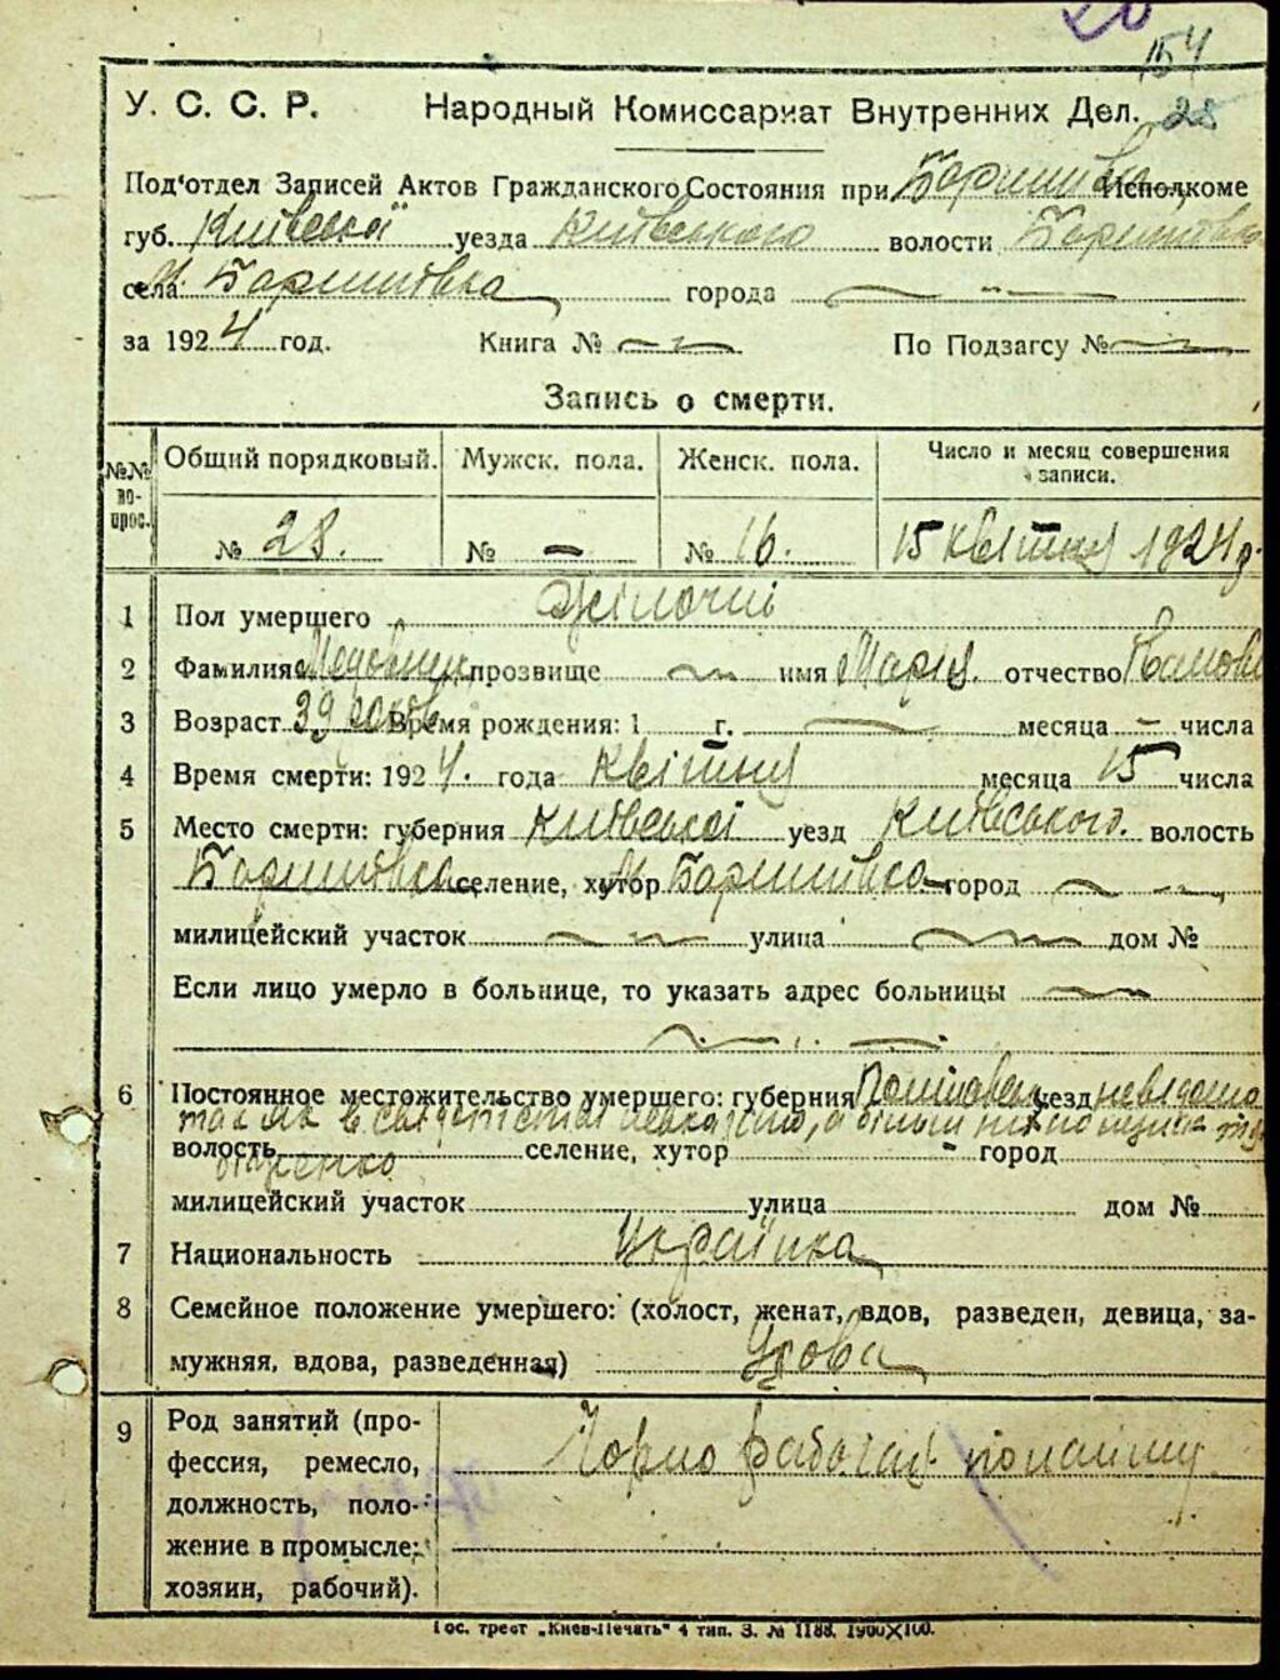 20
154
У. С. С. Р. Народный Комиссариат Внутренних Дел. 28
Под'отдел Записей Актов Гражданского Состояния при Исполкоме
губ. Київської уезда Київського волости Баришівка
села м. Баришівка города
за 1924 год. Книга № По Подзагсу №
Запись о смерти.
№№ вопрос. Общий порядковый. Мужск. пола. Женск. пола. Число и месяц совершения записи.
№ 28. № — № 16. 15 квітня 1924 р.
1 Пол умершего жіночий
2 Фамилия прозвище имя Марія. отчество
3 Возраст 39 років Время рождения: 1 г. месяца — числа
4 Время смерти: 1924. года квітня месяца 15 числа
5 Место смерти: губерния Київської уезд Київського. волость
Баришівка селение, хутор м. Баришівка город
милицейский участок улица дом №
Если лицо умерло в больнице, то указать адрес больницы
6 Постоянное местожительство умершего: губерния Полтавськ уезд невідомо
так як в
волость селение, хутор - город
милицейский участок улица дом №
7 Национальность Українка
8 Семейное положение умершего: (холост, женат, вдов, разведен, девица, за-
мужняя, вдова, разведенная) Удова
9 Род занятий (про-
фессия, ремесло,
должность, поло-
жение в промысле:
хозяин, рабочий).
Чорно рабочая по найму
Гос. трест „Киев-Печать“ 4 тип. З. № 1188. 1900X100.